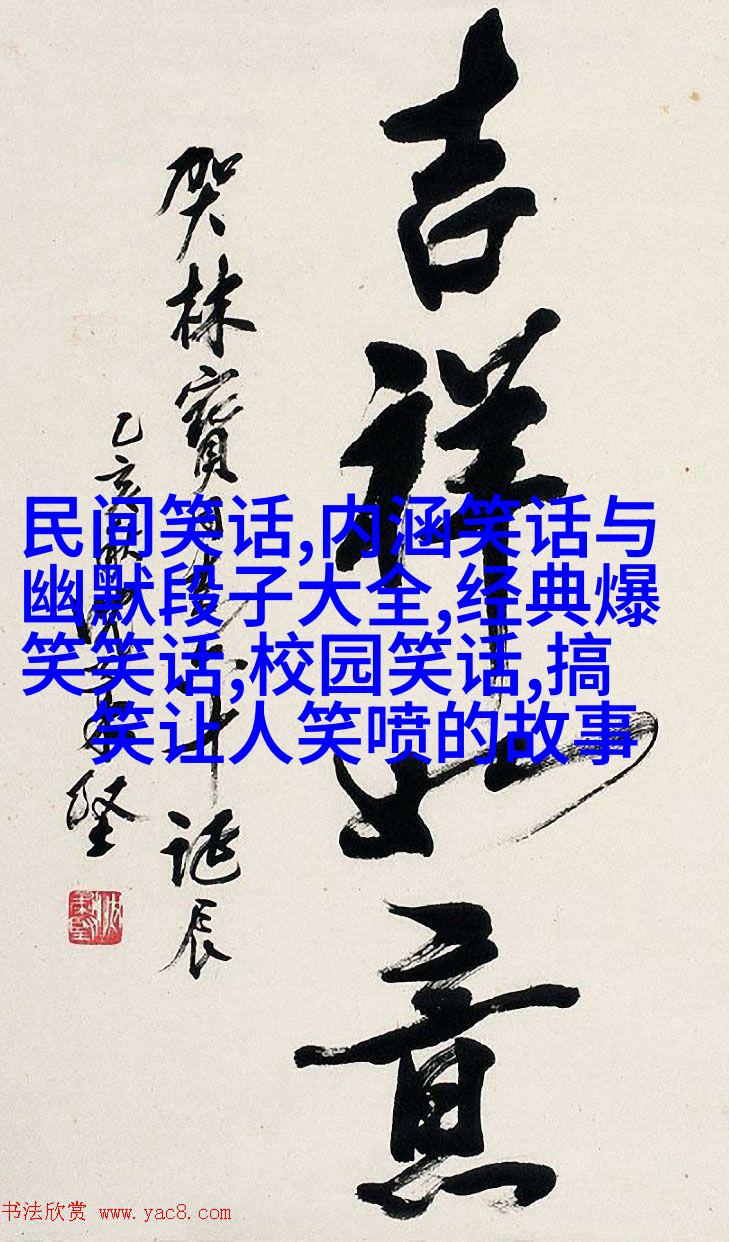 吉祥如意
贺林宝
诞辰
乙亥
民间笑话,内涵笑话与
幽默段子大全,经典爆
笑笑话,校园笑话,搞
笑让人笑喷的故事
书法欣赏 www.yac8.com